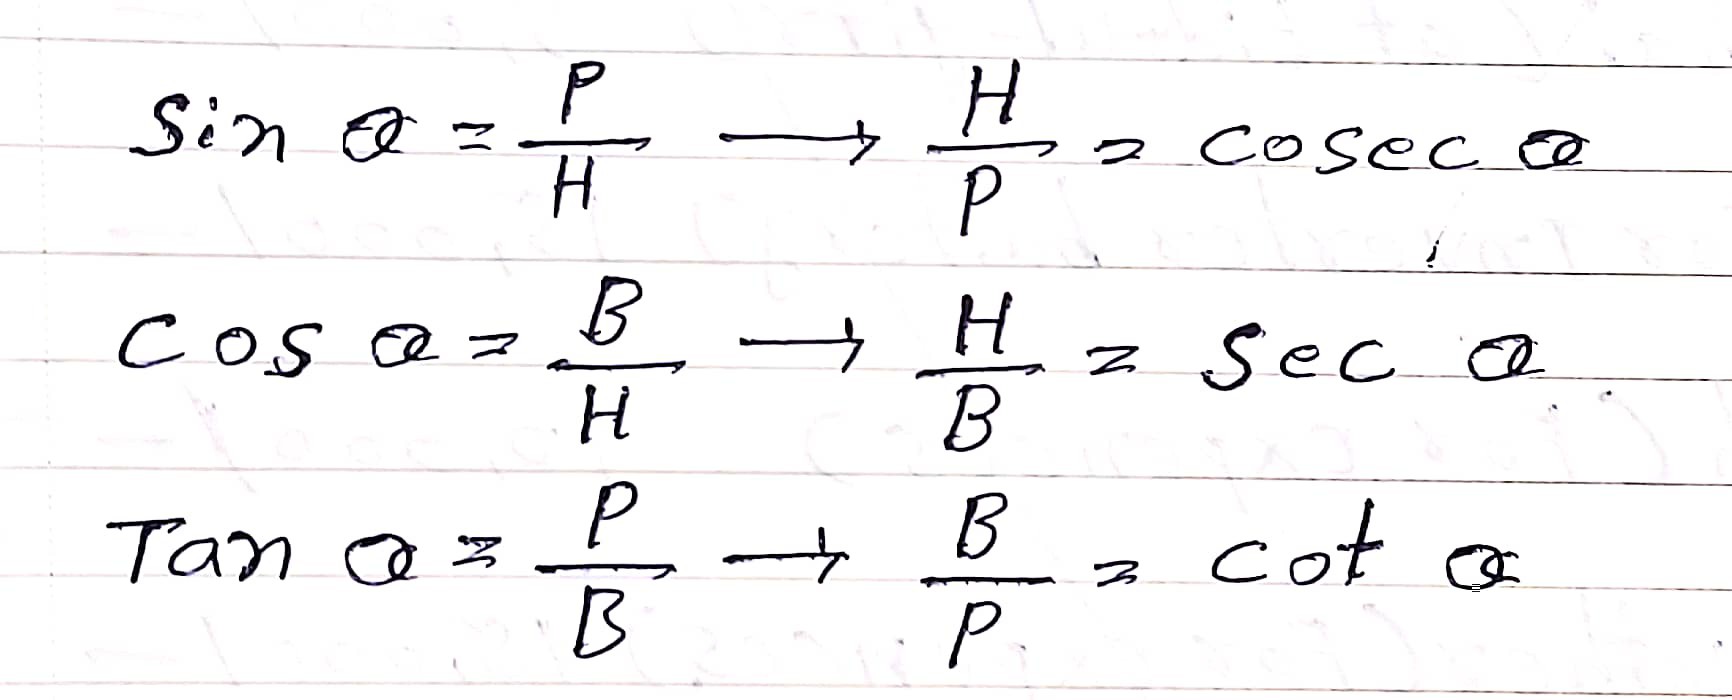 Sin θ = P/H → H/P = cosec θ
Cos θ = B/H → H/B = Sec θ
Tan θ = P/B → B/P = cot θ